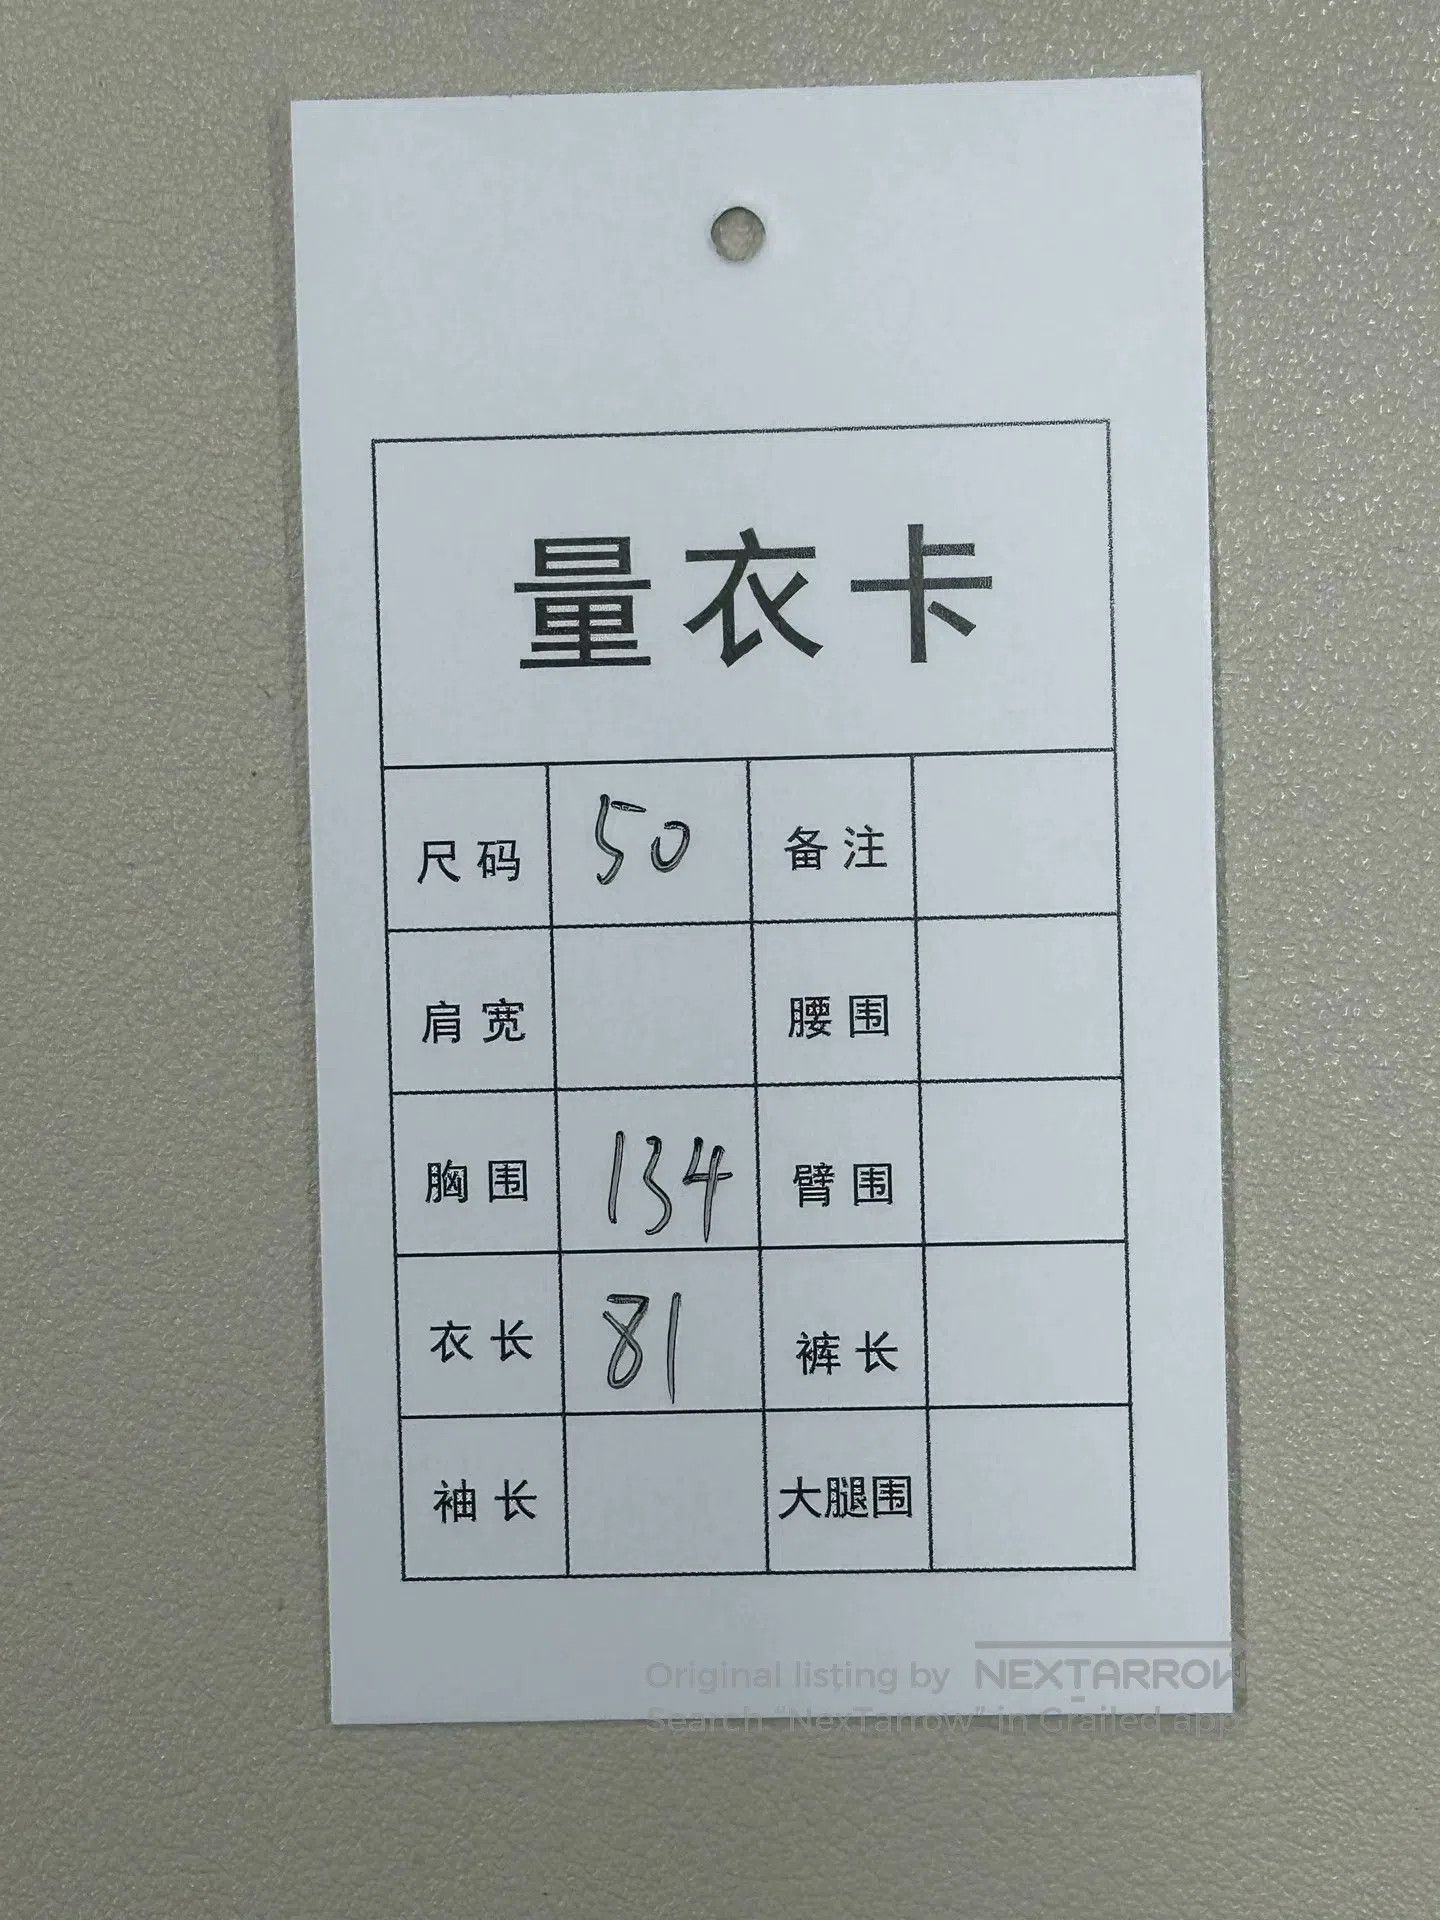 量衣卡
尺码 50 备注
肩宽 腰围
胸围 134 臂围
衣长 81 裤长
袖长 大腿围
Original listing by NEXTARROW
Search "NexTarrow" in Grailed app